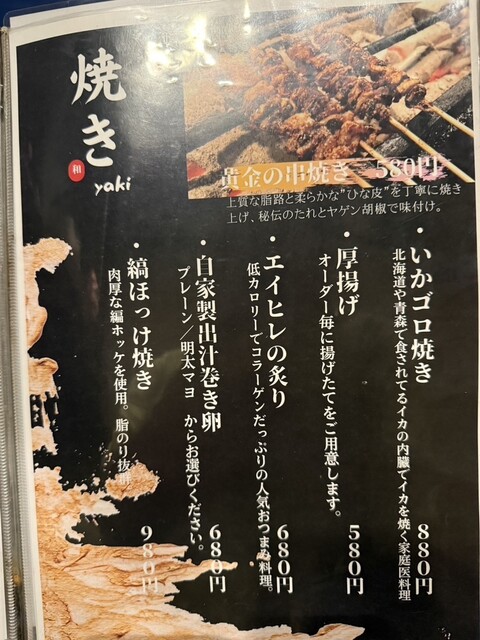 焼き
和
yaki
黄金の串焼き　580円
上質な脂路と柔らかな"ひな皮"を丁寧に焼き
上げ、秘伝のたれとヤゲン胡椒で味付け。
・いかゴロ焼き　880円
北海道や青森で食されてるイカの内臓でイカを焼く家庭医料理
・厚揚げ　580円
オーダー毎に揚げたてをご用意します。
・エイヒレの炙り　680円
低カロリーでコラーゲンだっぷりの人気おつまみ料理。
・自家製出汁巻き卵　680円
プレーン／明太マヨ　からお選びください。
・縞ほっけ焼き　980円
肉厚な編ホッケを使用。脂のり抜群